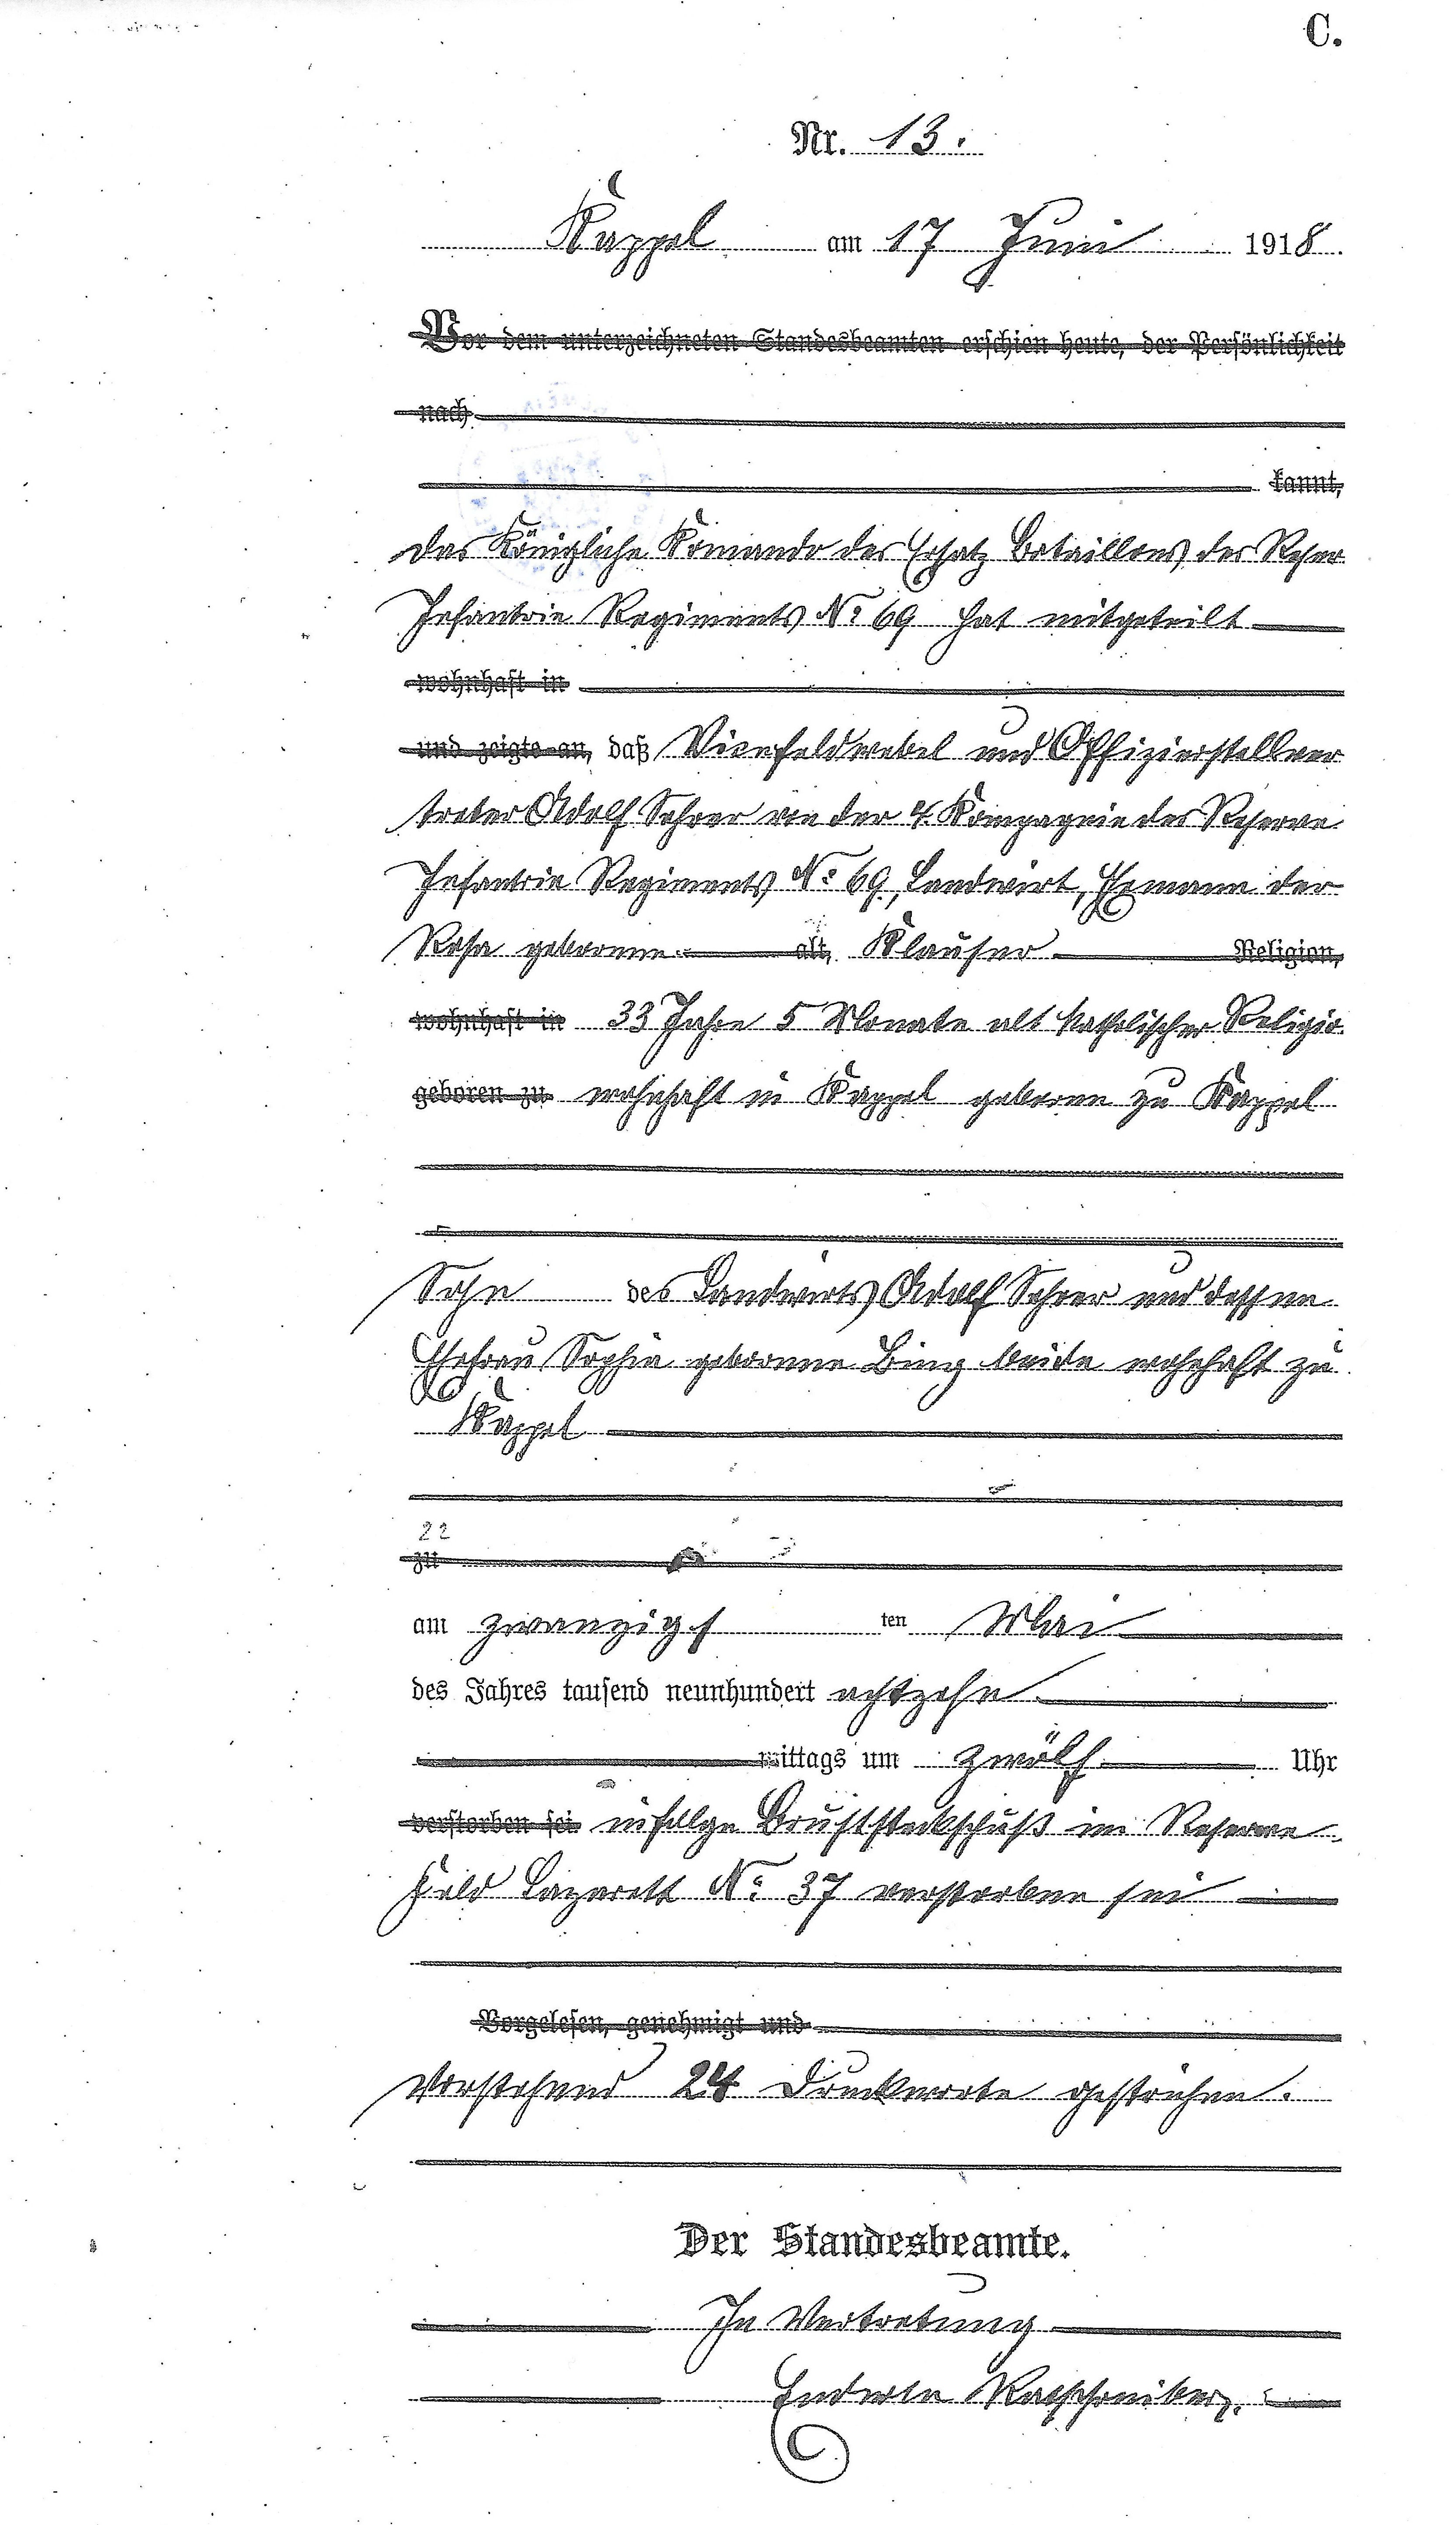 C.
Nr. 13.
Kappel am 17 Juni 1918.
Vor dem unterzeichneten Standesbeamten erschien heute, der Persönlichkeit
nach
kannt,
das Königliche Komando des Ersatz Bataillons des Reser
Infantrie Regiments No 69 hat mitgeteilt
wohnhaft in
und zeigte an, daß Vizefeldwebel und Offizierstellver
treter Adolf Sahrer von der 4. Kompagnie des Reserve
Infantrie Regiments No 69, Landwirt, Ehemann der
Rosa geborenen alt, Klauser Religion,
wohnhaft in 33 Jahre 5 Monate alt katholischer Religio
geboren zu wohnhaft in Kappel geboren zu Kappel
Sohn des Landwirts Adolf Sahrer und dessen
Ehefrau Sophia geborenne Bing beide wohnhaft zu
Kappel
22
zu
am zwanzigs ten Mai
des Jahres tausend neunhundert achtzehn
mittags um zwölf Uhr
verstorben sei infolge Bruststeckschuß im Reserve
Feld Lazarett No 37 verstorben sei
Vorgelesen, genehmigt und
Vorstehend 24 Druckworte gestrichen.
Der Standesbeamte.
In Vertretung
Enderle Ratschreiber.